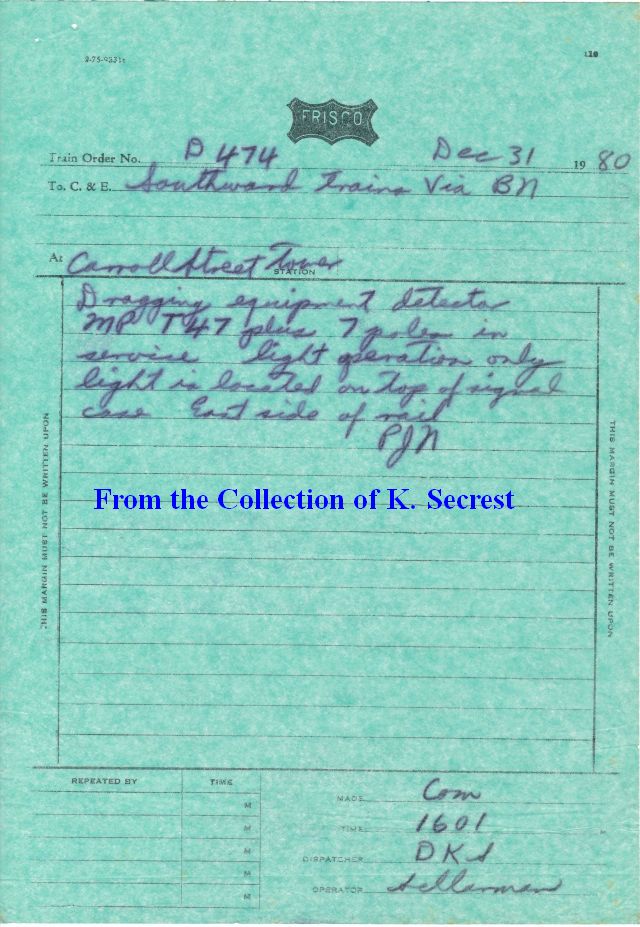 2-75-9331t
110
FRISCO
Train Order No. D 474 Dec 31 19 80
To. C. & E. Southward trains Via BN
At Carroll Street Tower
STATION
Dragging equipment detector
MP T47 plus 7 poles in
service light operation only
light is located on top of signal
case East side of rail
PJN
THIS MARGIN MUST NOT BE WRITTEN UPON
THIS MARGIN MUST NOT BE WRITTEN UPON
From the Collection of K. Secrest
REPEATED BY TIME
M
M
M
M
M
MADE Com
TIME 1601 M
DISPATCHER DKS
OPERATOR Sellarman